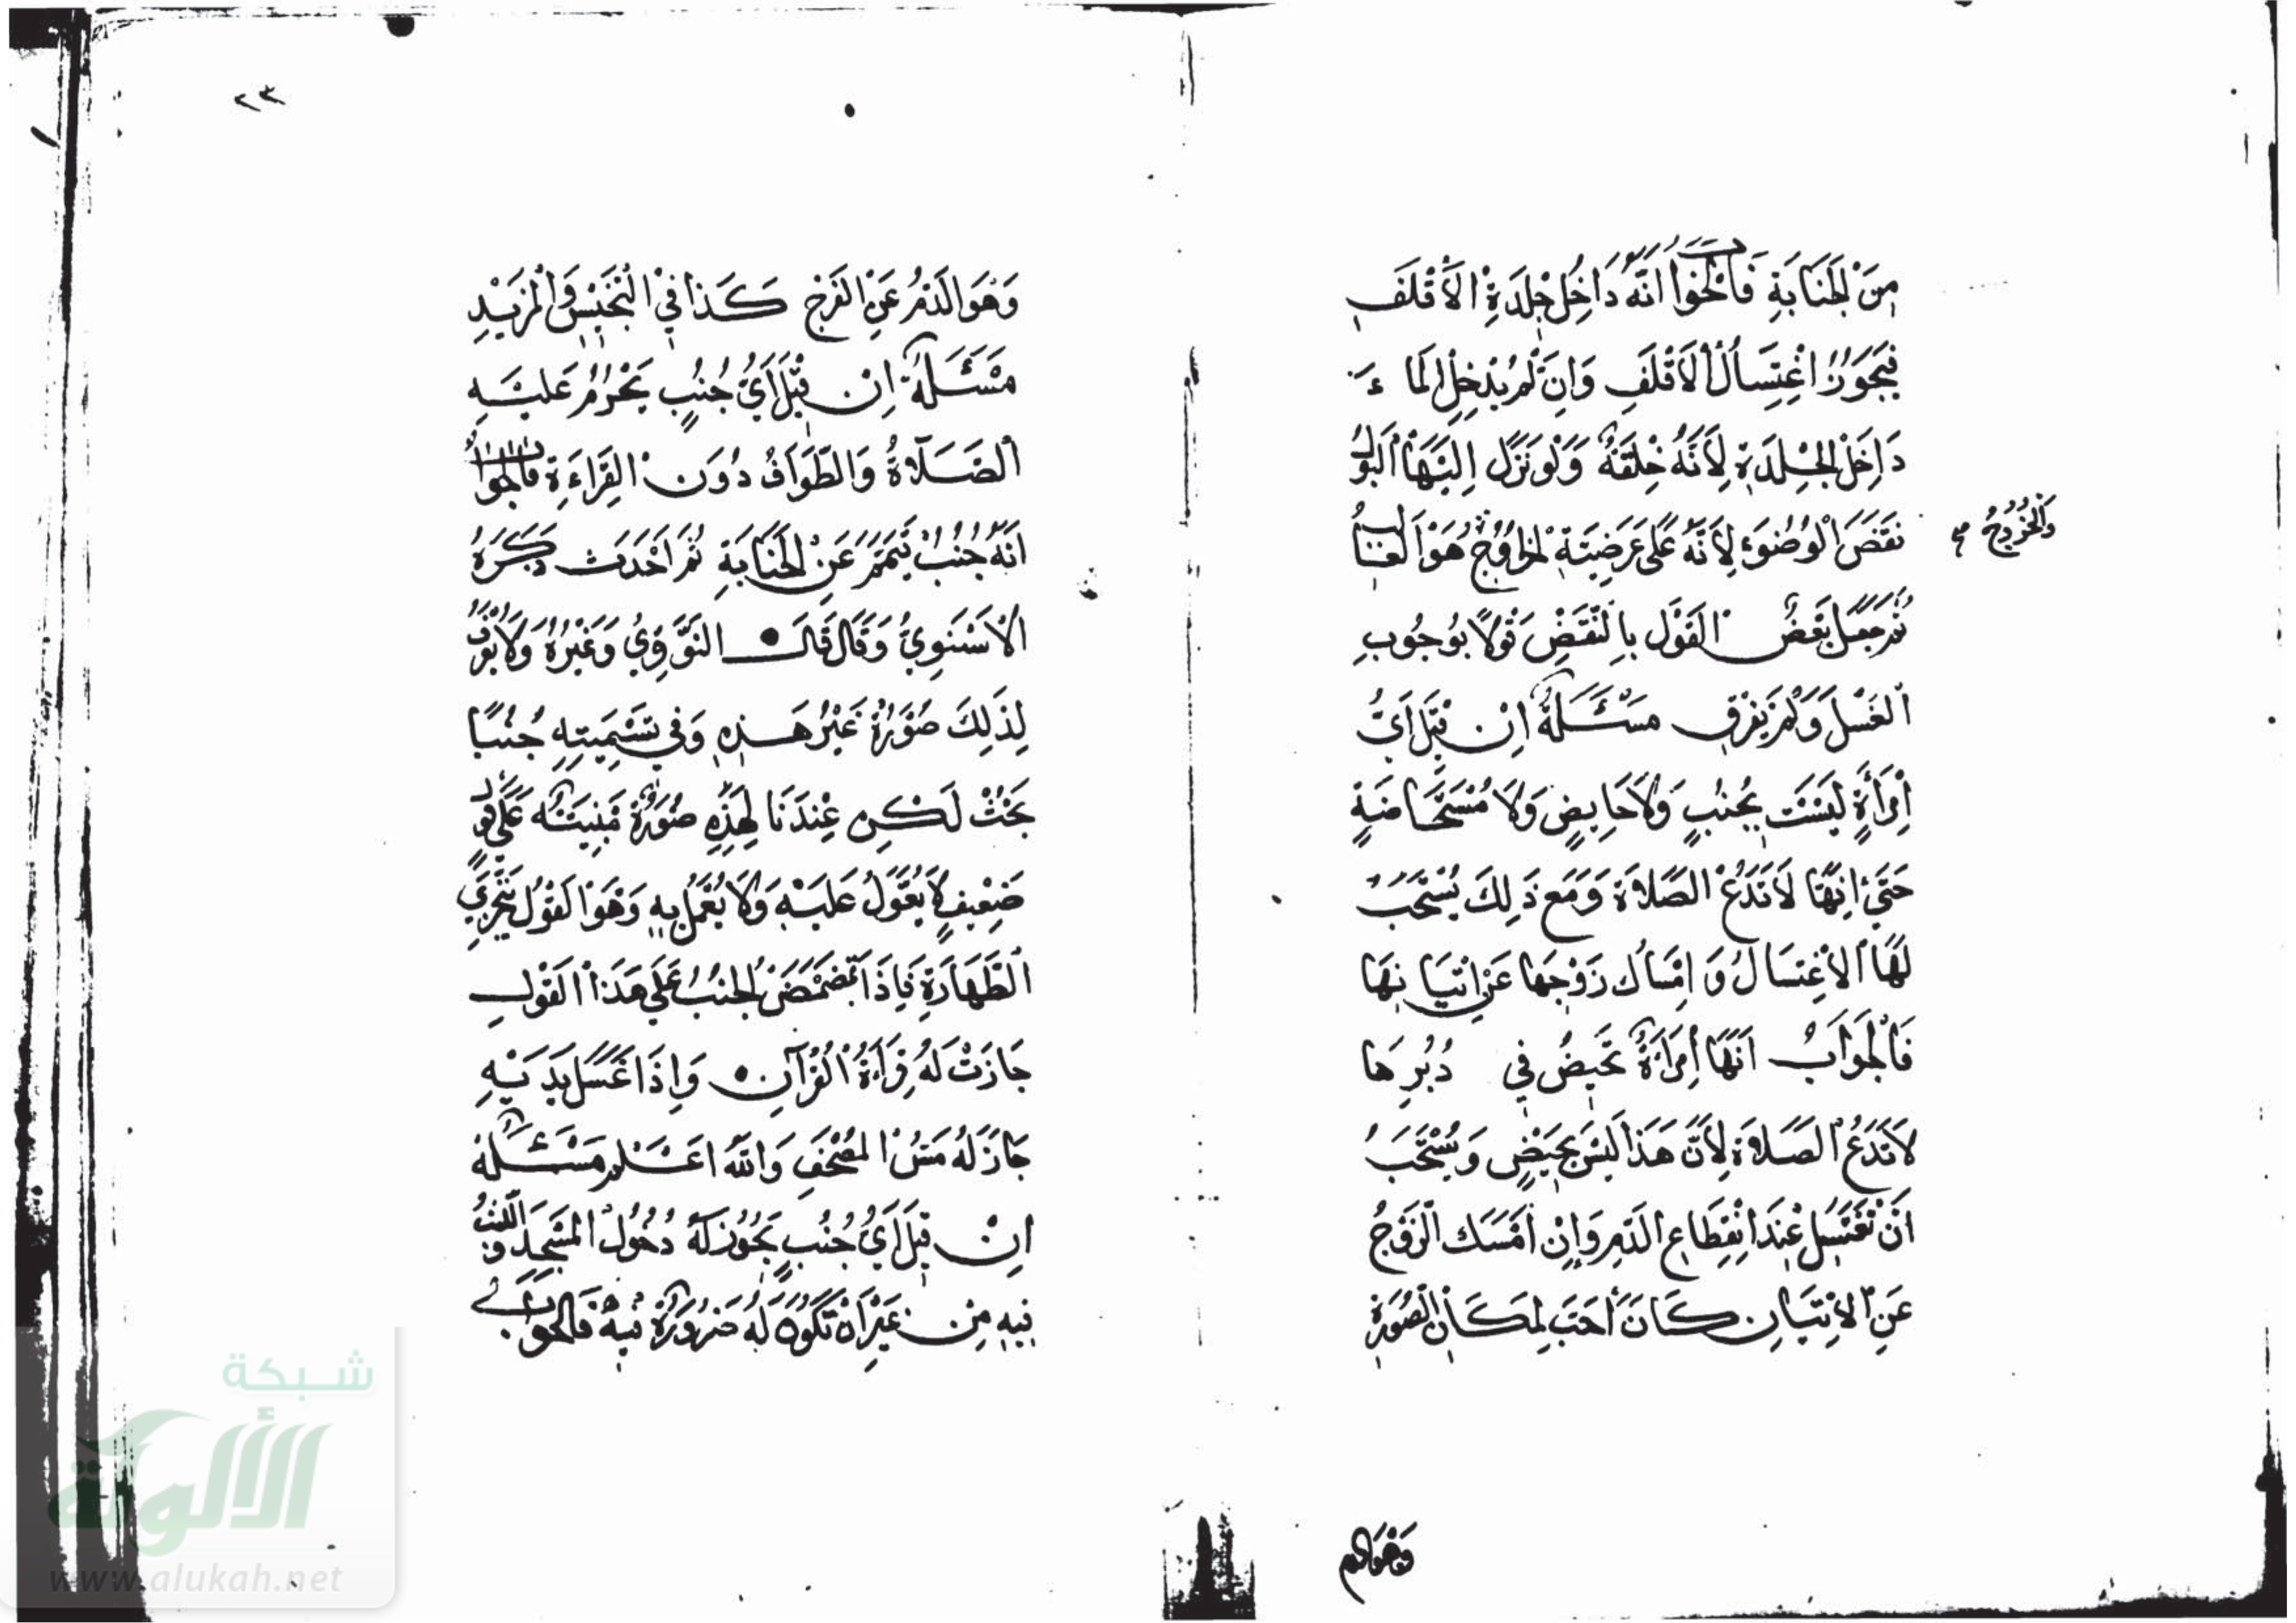 مِنَ الْجَنَابَةِ فَالْجَوابُ انَّهُ دَاخِلُ جِلْدَةِ الْأَقْلَفِ
فَيَجُوزُ اغْتِسَالُ الْأَقْلَفِ وَانْ لَمْ يُدْخِلِ الْمَاءَ
دَاخِلَ الْجِلْدَةِ لِأَنَّهُ خِلْقَةٌ وَلَوْ نَزَلَ الَيْهَا الْبَوْلُ
نَقَضَ الْوُضُوءَ لِأَنَّهُ عَلَى عَرَضِيَّةِ الْخُرُوجِ هُوَ الْغَالِبُ
وَالْخُرُوجُ
ثُمَّ جَعَلَ بَعْضُ الْقَوْلِ بِالنَّقْضِ قَوْلًا بِوُجُوبِ
الْغَسْلِ وَلَمْ يَفْرِقِ مَسْئَلَةٌ اِنْ قِيلَ أَيُّ
اِمْرَأَةٍ لَيْسَتْ بِجُنُبٍ وَلَا حَايِضٍ وَلَا مُسْتَحَاضَةٍ
حَتَّى انَّهَا لَا تَدَعُ الصَّلَاةَ وَمَعَ ذَلِكَ يُسْتَحَبُّ
لَهَا الْاغْتِسَالُ وَ اِمْسَاكُ زَوْجِهَا عَنْ اتْيَانِهَا
فَالْجَوَابُ انَّهَا اِمْرَأَةٌ تَحِيضُ فِي دُبُرِهَا
لَا تَدَعُ الصَّلَاةَ لِأَنَّ هَذَا لَيْسَ بِحَيْضٍ وَيُسْتَحَبُّ
انْ تَغْتَسِلَ عِنْدَ انْقِطَاعِ الدَّمِ وَاِنْ امْسَكَ الزَّوْجُ
عَنِ الْاِتْيَانِ كَانَ أَحَبَّ لِمَكَانِ الصُّورَةِ
وَهُوَ الدم
٢٣
وَهُوَ الدَّمُ عَنِ الْفَرْجِ كَذَا فِي التَّجْنِيسِ وَالْمَزِيدِ
مَسْئَلَةٌ اِنْ قِيلَ أَيُّ جُنُبٍ يَحْرُمُ عَلَيْهِ
الصَّلَاةُ وَالطَّوَافُ دُونَ الْقِرَاءَةِ فَالْجَوابُ
انَّهُ جُنُبٌ تَيَمَّمَ عَنْ الْجَنَابَةِ ثُمَّ احْدَثَ ذَكَرَهُ
الْاسْنَوِيُّ وَقَالَ قَالَ النَّوَوِيُّ وَغَيْرُهُ وَلَا يُعْرَفُ
لِذَلِكَ صُورَةٌ غَيْرُ هَذِهِ وَفِي تَسْمِيَتِهِ جُنُبًا
بَحْثٌ لَكِنْ عِنْدَنَا لِهَذِهِ صُورَةٌ مَبْنِيَّةٌ عَلَى قَوْلٍ
ضَعِيفٍ لَا يُعَوَّلُ عَلَيْهِ وَلَا يُعْمَلُ بِهِ وَهُوَ الْقَوْلُ بِتَجَزِّي
الطَّهَارَةِ فَاِذَا تَمَضْمَضَ الْجُنُبُ عَلَى هَذَا الْقَوْلِ
جَازَتْ لَهُ قِرَاءَةُ الْقُرْآنِ وَاِذَا غَسَلَ يَدَيْهِ
جَازَ لَهُ مَسُّ الْمُصْحَفِ وَاللّٰهُ اعْلَمُ مَسْئَلَةٌ
اِنْ قِيلَ أَيُّ جُنُبٍ يَجُوزُ لَهُ دُخُولُ الْمَسْجِدِ وَاللُّبْثُ
فِيهِ مِنْ غَيْرِ انْ تَكُونَ لَهُ ضَرُورَةٌ فِيهِ فَالْجَوَابُ
شبكة
الألوكة
www.alukah.net